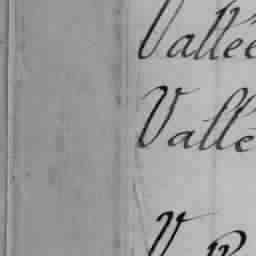 Vallée
Vallé